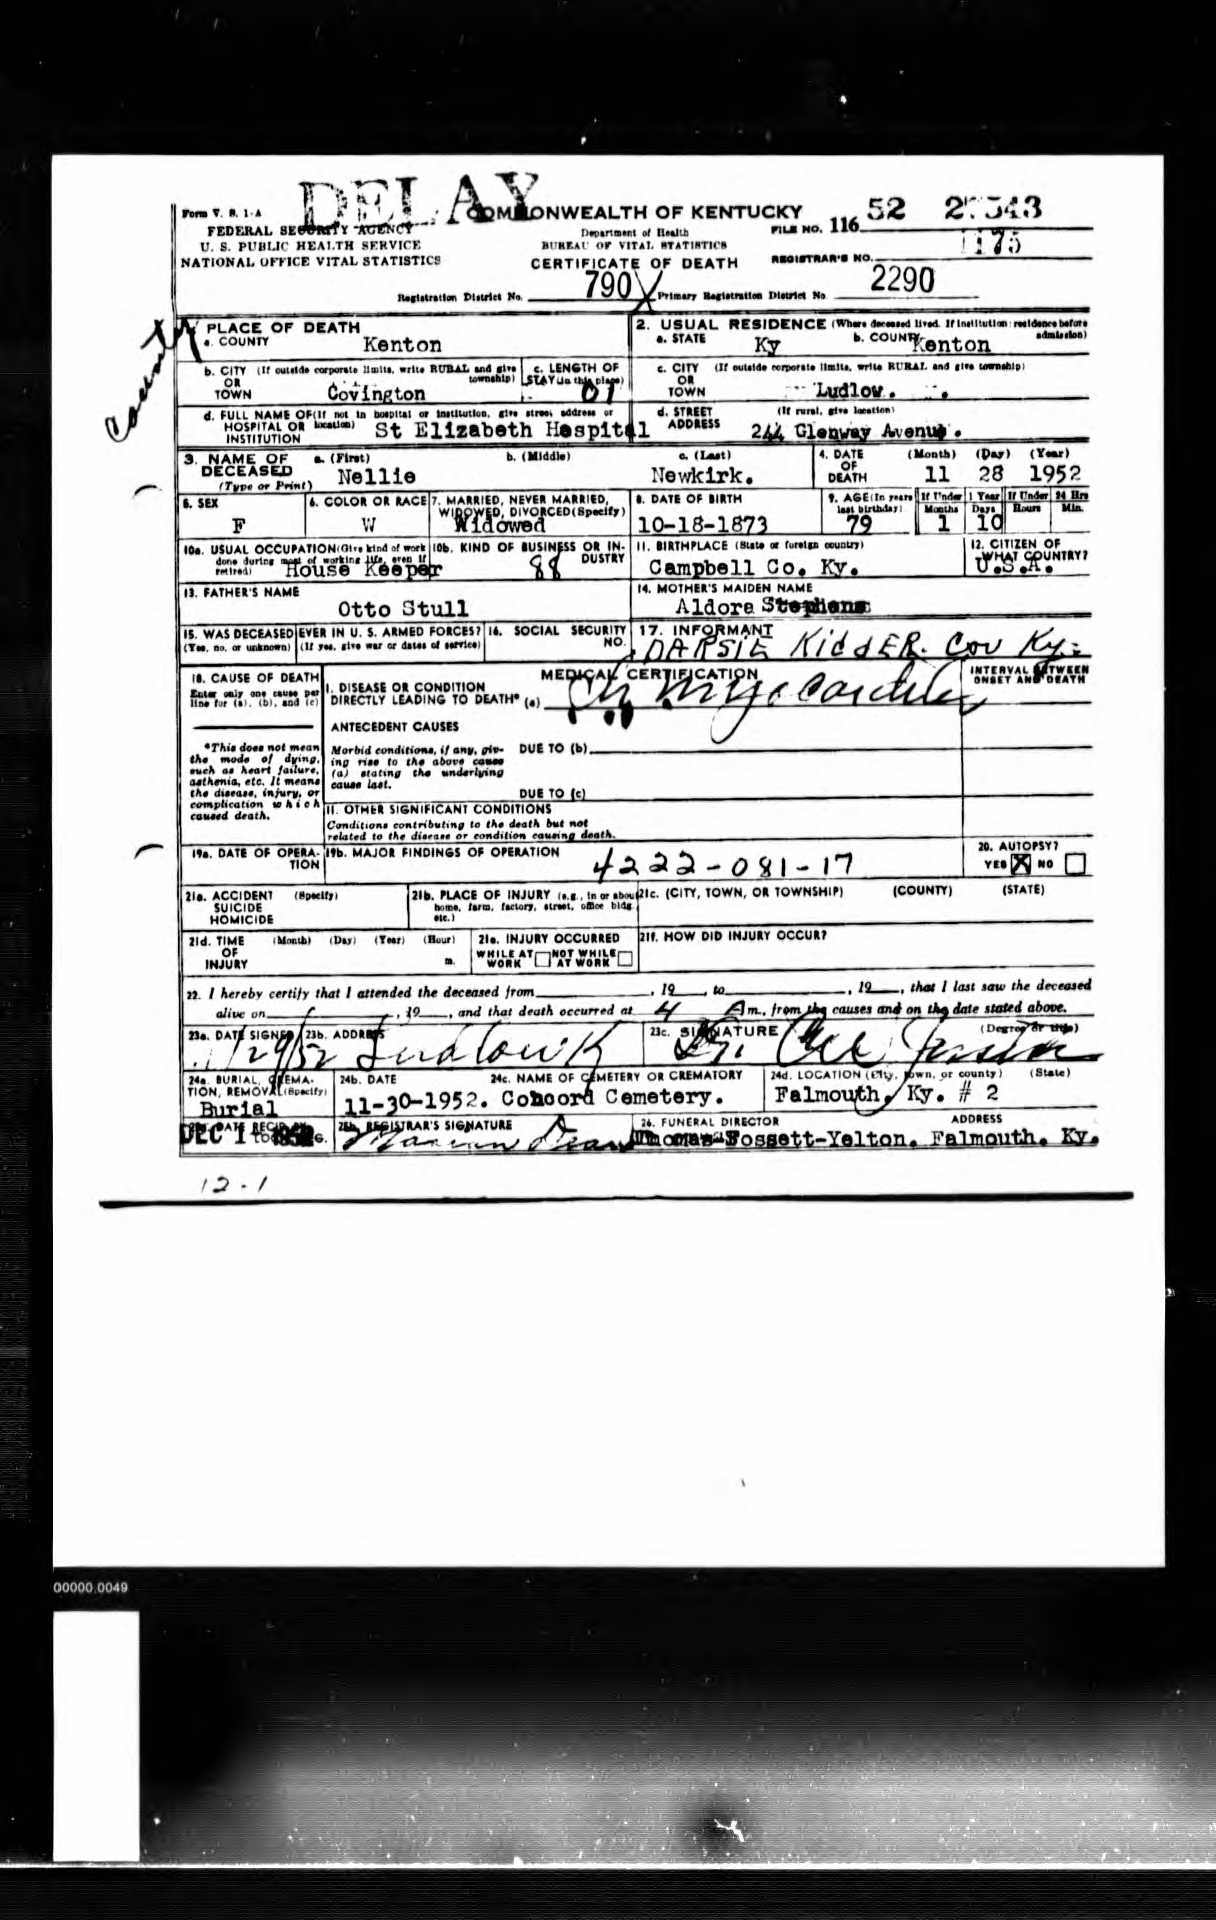 DELAY
Form V. S. 1-A
FEDERAL SECURITY AGENCY
U. S. PUBLIC HEALTH SERVICE
NATIONAL OFFICE VITAL STATISTICS
COMMONWEALTH OF KENTUCKY
Department of Health
BUREAU OF VITAL STATISTICS
CERTIFICATE OF DEATH
FILE NO. 116 52
REGISTRAR'S NO. 1175
Registration District No. 790 X Primary Registration District No. 2290
County
PLACE OF DEATH
a. COUNTY Kenton
2. USUAL RESIDENCE (Where deceased lived. If institution: residence before admission)
a. STATE Ky b. COUNTY Kenton
b. CITY (If outside corporate limits, write RURAL and give township)
OR
TOWN Covington
c. LENGTH OF STAY (in this place) 01
c. CITY (If outside corporate limits, write RURAL and give township)
OR
TOWN Ludlow.
d. FULL NAME OF (If not in hospital or institution, give street address or location)
HOSPITAL OR
INSTITUTION St Elizabeth Hospital
d. STREET ADDRESS (If rural, give location)
244 Glenway Avenue.
3. NAME OF DECEASED (Type or Print)
a. (First) Nellie
b. (Middle)
c. (Last) Newkirk.
4. DATE OF DEATH (Month) (Day) (Year)
11 28 1952
5. SEX F
6. COLOR OR RACE W
7. MARRIED, NEVER MARRIED, WIDOWED, DIVORCED (Specify) Widowed
8. DATE OF BIRTH 10-18-1873
9. AGE (In years last birthday) 79
If Under 1 Year Months 1 Days 10
If Under 24 Hrs Hours Min.
10a. USUAL OCCUPATION (Give kind of work done during most of working life, even if retired) House Keeper
10b. KIND OF BUSINESS OR INDUSTRY 88
11. BIRTHPLACE (State or foreign country) Campbell Co. Ky.
12. CITIZEN OF WHAT COUNTRY? U.S.A.
13. FATHER'S NAME Otto Stull
14. MOTHER'S MAIDEN NAME Aldora Stephens
15. WAS DECEASED EVER IN U. S. ARMED FORCES? (Yes, no, or unknown) (If yes, give war or dates of service)
16. SOCIAL SECURITY NO.
17. INFORMANT DARSIE KIDDER. Cov Ky.
18. CAUSE OF DEATH
Enter only one cause per line for (a), (b), and (c)
MEDICAL CERTIFICATION
INTERVAL BETWEEN ONSET AND DEATH
I. DISEASE OR CONDITION DIRECTLY LEADING TO DEATH* (a)
*This does not mean the mode of dying, such as heart failure, asthenia, etc. It means the disease, injury, or complication which caused death.
ANTECEDENT CAUSES
Morbid conditions, if any, giving rise to the above cause (a) stating the underlying cause last.
DUE TO (b)
DUE TO (c)
II. OTHER SIGNIFICANT CONDITIONS
Conditions contributing to the death but not related to the disease or condition causing death.
19a. DATE OF OPERATION
19b. MAJOR FINDINGS OF OPERATION
4222-081-17
20. AUTOPSY?
YES X NO
21a. ACCIDENT SUICIDE HOMICIDE (Specify)
21b. PLACE OF INJURY (e.g., in or about home, farm, factory, street, office bldg. etc.)
21c. (CITY, TOWN, OR TOWNSHIP) (COUNTY) (STATE)
21d. TIME OF INJURY (Month) (Day) (Year) (Hour) m.
21e. INJURY OCCURRED
WHILE AT WORK NOT WHILE AT WORK
21f. HOW DID INJURY OCCUR?
22. I hereby certify that I attended the deceased from , 19 , to , 19 , that I last saw the deceased
alive on , 19 , and that death occurred at 4 A m., from the causes and on the date stated above.
23a. DATE SIGNED
23b. ADDRESS Ludlow K
23c. SIGNATURE (Degree or title)
Dr.
24a. BURIAL, CREMATION, REMOVAL (Specify) Burial
24b. DATE 11-30-1952.
24c. NAME OF CEMETERY OR CREMATORY Concord Cemetery.
24d. LOCATION (City, town, or county) (State)
Falmouth, Ky. # 2
DEC 1 1952
25b. REGISTRAR'S SIGNATURE
Marian Dean
26. FUNERAL DIRECTOR ADDRESS
Thomas Fossett-Yelton. Falmouth. Ky.
12-1
00000.0049